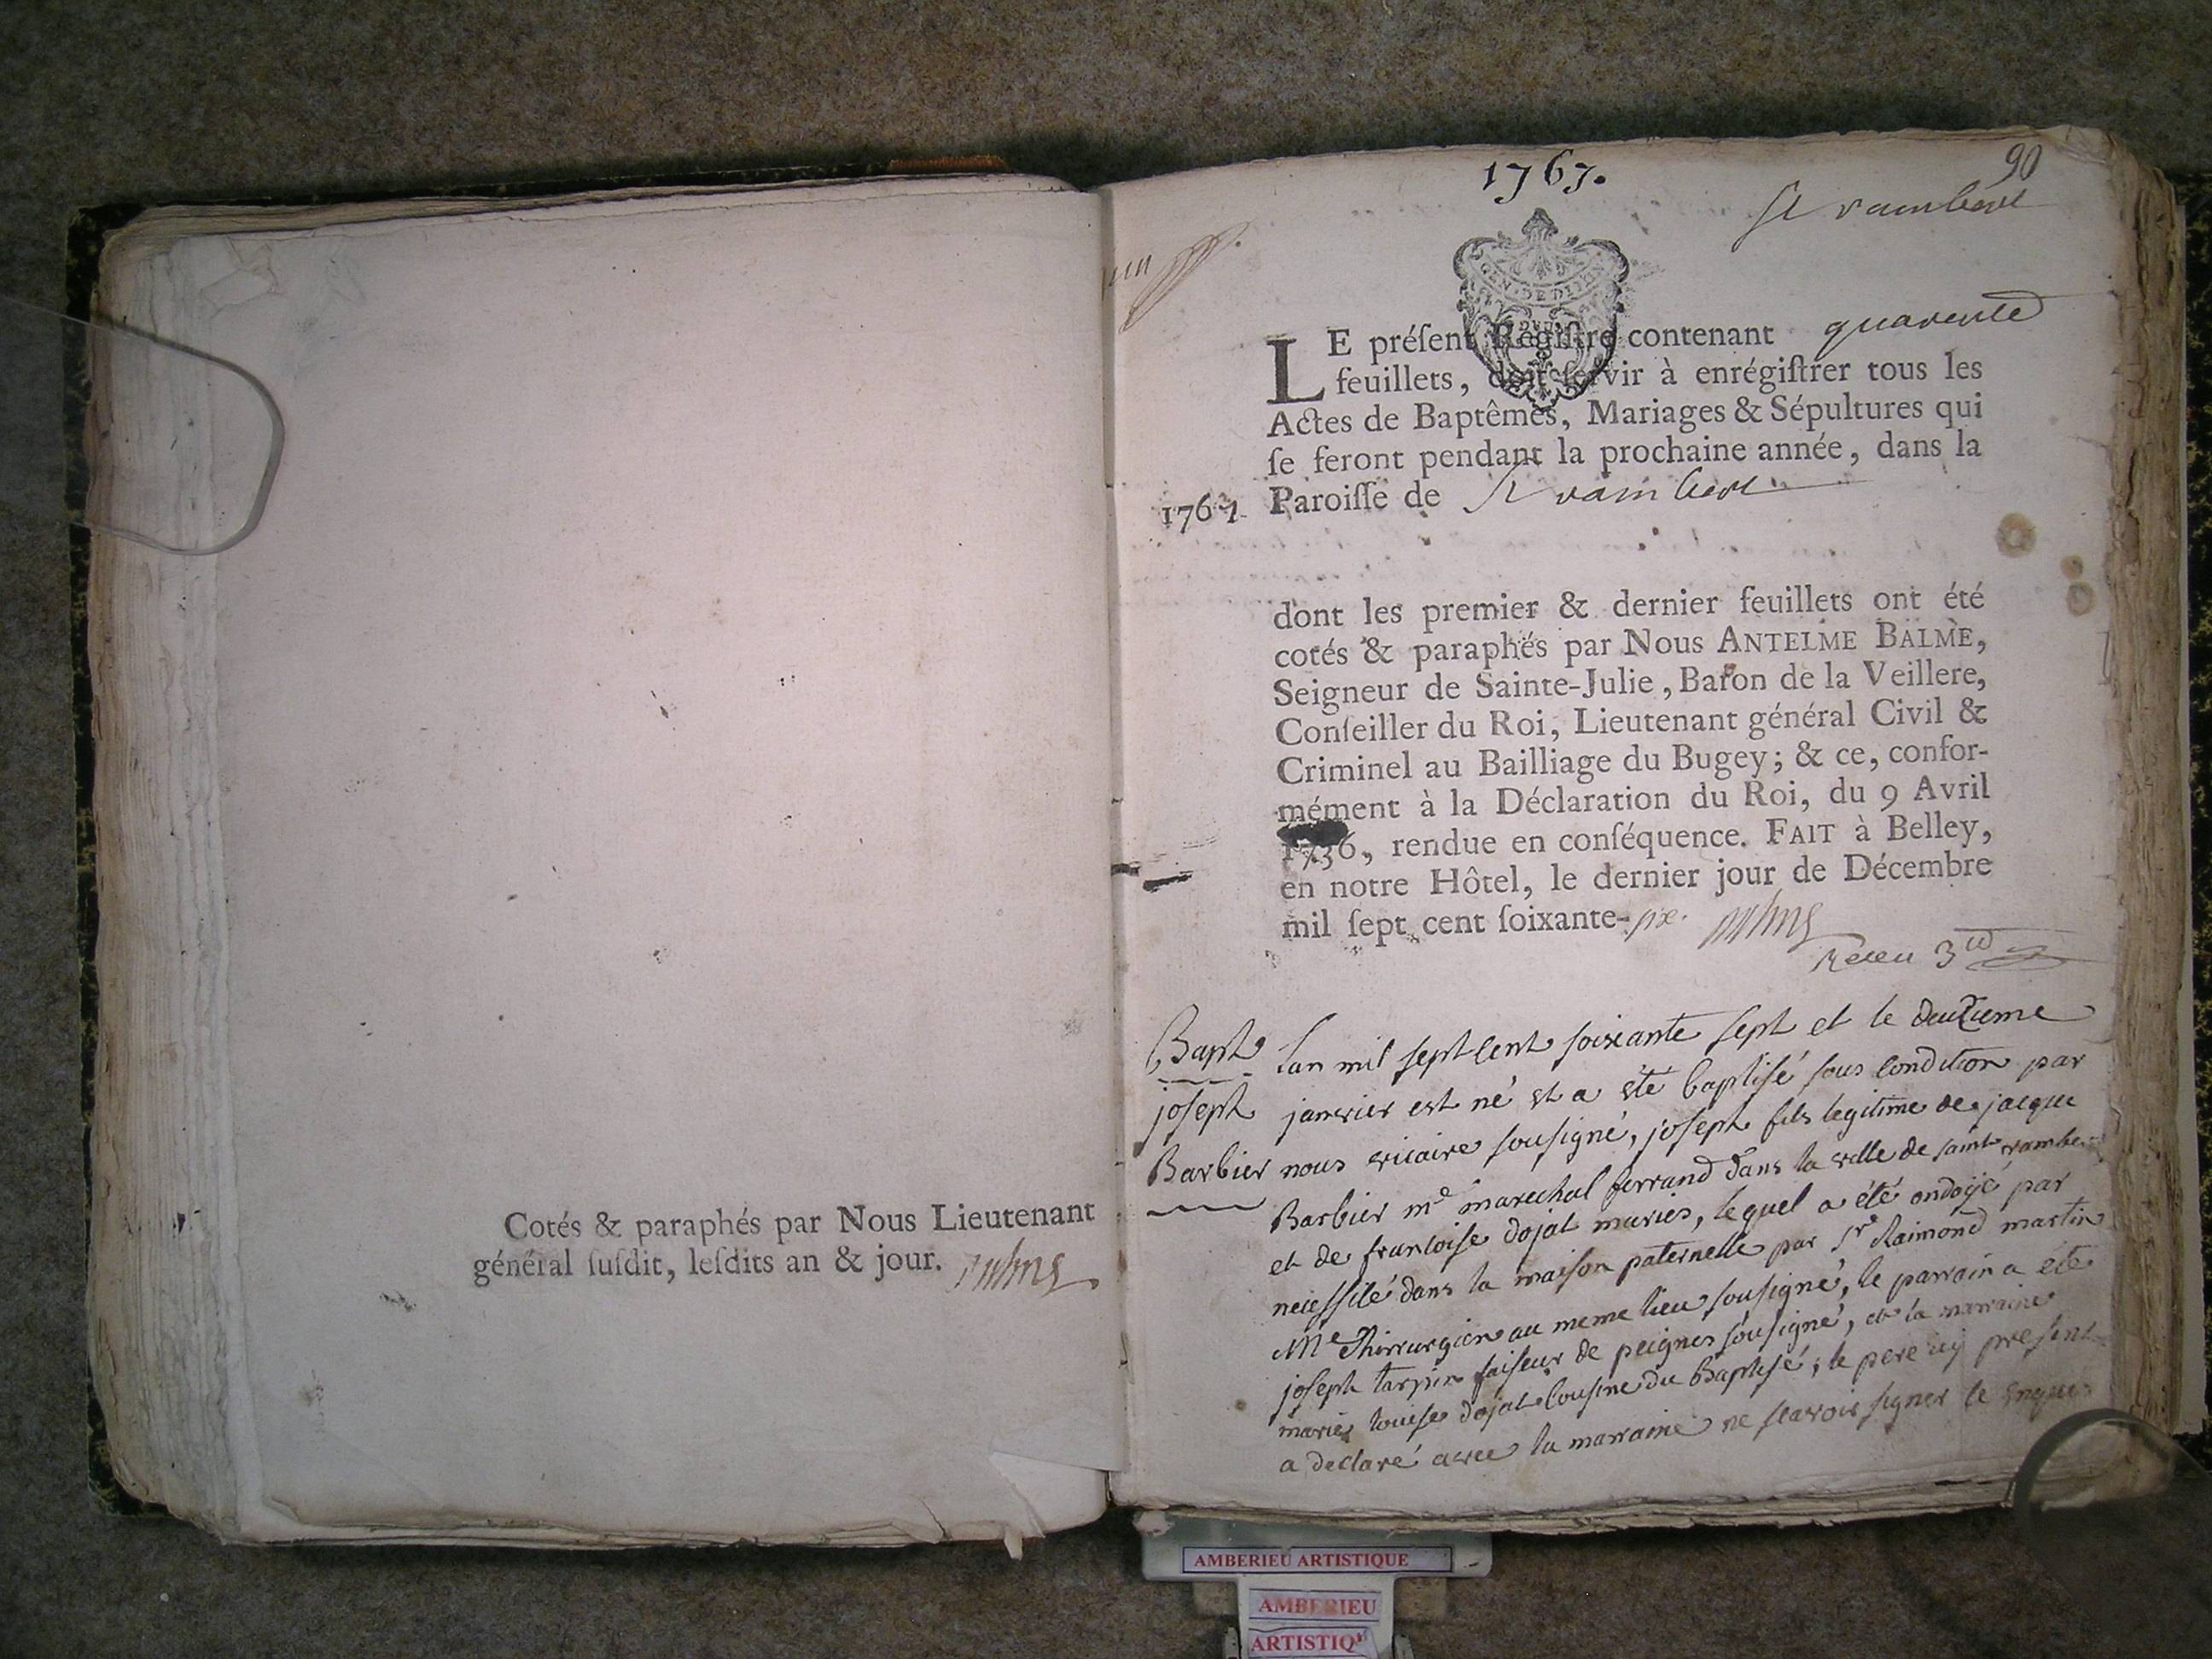 Cotés & paraphés par Nous Lieutenant
général ſuſdit, leſdits an & jour.
1767.
90
St rambert
GEN. DE DIJON
LE préſent Régiſtre contenant quarente
feuillets, doit ſervir à enrégiſtrer tous les
Actes de Baptêmes, Mariages & Sépultures qui
ſe feront pendant la prochaine année, dans la
1767 Paroiſſe de St rambert
dont les premier & dernier feuillets ont été
cotés & paraphés par Nous ANTELME BALME,
Seigneur de Sainte-Julie, Baron de la Veillere,
Conſeiller du Roi, Lieutenant général Civil &
Criminel au Bailliage du Bugey; & ce, confor-
mément à la Déclaration du Roi, du 9 Avril
1736, rendue en conſéquence. FAIT à Belley,
en notre Hôtel, le dernier jour de Décembre
mil ſept cent ſoixante-six.
Receu 3
Bapt lan mil sept cent soixante sept et le deuzieme
joseph janvier est né et a été baptisé sous condition par
Barbier nous vicaire sousigné, joseph fils legitime de jacque
Barbier md marechal ferrand dans la ville de saint rambert
et de francoise dojat mariés, lequel a été ondoyé par
necessité dans la maison paternelle par Sr Raimond martin
Me Chirurgien au meme lieu sousigné, le parrain a eté
joseph tarpin faiseur de peignes sousigné, et la marraine
marie louise dojat cousine du Baptisé, le pere icy present
a declaré avec la marraine ne scavoir signer ce enquis
AMBERIEU ARTISTIQUE
AMBERIEU
ARTISTIQ